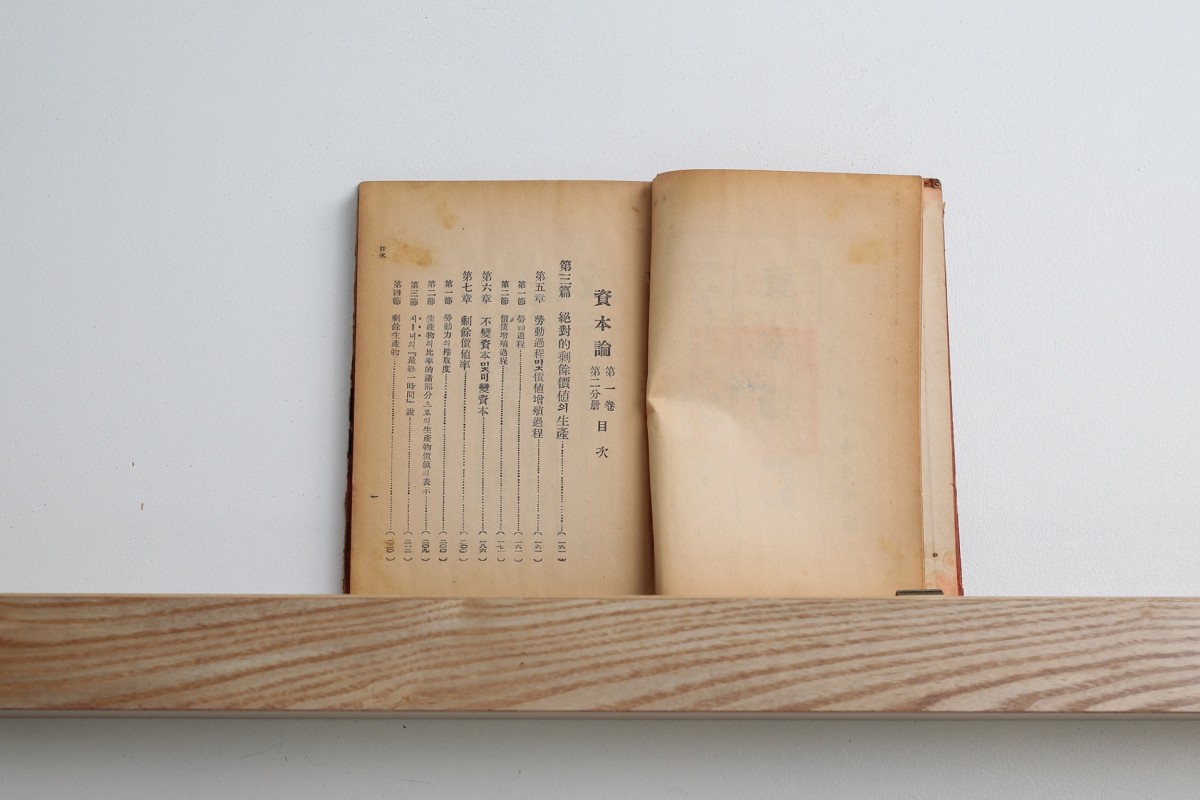 資本論 第一卷 第二分册 目次
第三篇 絕對的剩餘價値의生產
第五章 勞動過程및價値增殖過程
第一節 勞動過程
第二節 價値增殖過程
第六章 不變資本및可變資本
第七章 剩餘價値率
第一節 勞動力의搾取度
第二節 生產物의比率的諸部分으로의生產物價値의表示
第三節 시—니의『最終一時間』說
第四節 剩餘生產物
目次
一